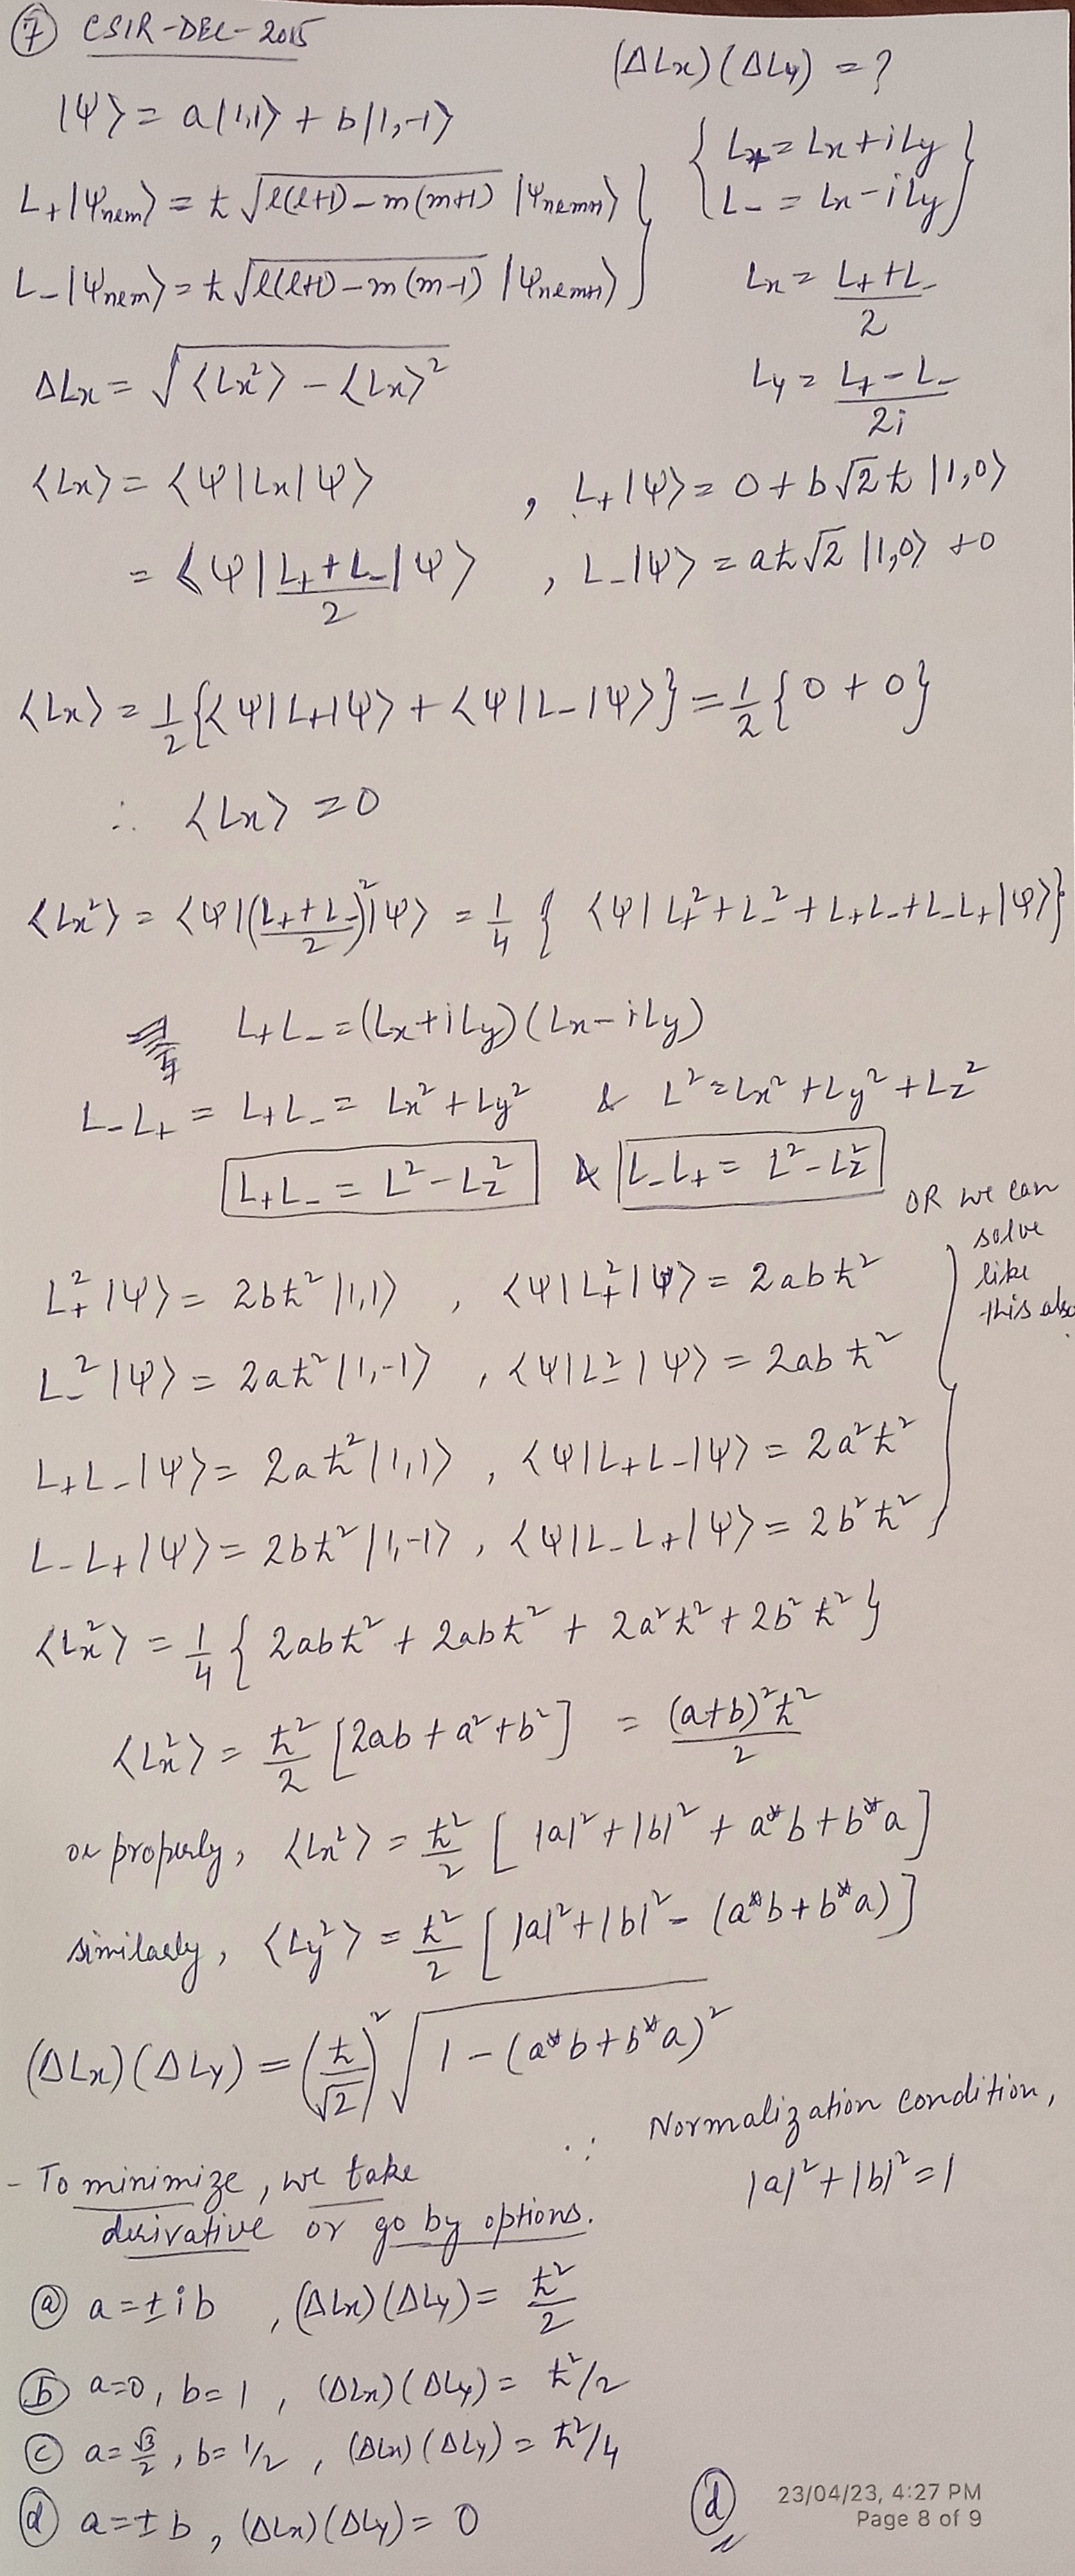 ⑦ CSIR-DEC-2015
(ΔLx)(ΔLy) = ?
|Ψ⟩ = a|1,1⟩ + b|1,-1⟩
{ L+ = Lx + iLy
L- = Lx - iLy }
L+|Ψnlm⟩ = ħ √(l(l+1) - m(m+1)) |Ψnlm+1⟩
L-|Ψnlm⟩ = ħ √(l(l+1) - m(m-1)) |Ψnlm+1⟩
Lx = (L+ + L-)/2
ΔLx = √(⟨Lx²⟩ - ⟨Lx⟩²)
Ly = (L+ - L-)/2i
⟨Lx⟩ = ⟨Ψ|Lx|Ψ⟩ , L+|Ψ⟩ = 0 + b√2 ħ |1,0⟩
= ⟨Ψ|(L+ + L-)/2|Ψ⟩ , L-|Ψ⟩ = aħ√2 |1,0⟩ + 0
⟨Lx⟩ = 1/2 {⟨Ψ|L+|Ψ⟩ + ⟨Ψ|L-|Ψ⟩} = 1/2 {0 + 0}
∴ ⟨Lx⟩ = 0
⟨Lx²⟩ = ⟨Ψ|((L+ + L-)/2)²|Ψ⟩ = 1/4 { ⟨Ψ|L+² + L-² + L+L- + L-L+|Ψ⟩}
L+L- = (Lx + iLy)(Lx - iLy)
L-L+ = L+L- = Lx² + Ly² & L² = Lx² + Ly² + Lz²
L+L- = L² - Lz² & L-L+ = L² - Lz²
OR we can
solve
like
this also.
L+²|Ψ⟩ = 2bħ²|1,1⟩ , ⟨Ψ|L+²|Ψ⟩ = 2abħ²
L-²|Ψ⟩ = 2aħ²|1,-1⟩ , ⟨Ψ|L-²|Ψ⟩ = 2abħ²
L+L-|Ψ⟩ = 2aħ²|1,1⟩ , ⟨Ψ|L+L-|Ψ⟩ = 2a²ħ²
L-L+|Ψ⟩ = 2bħ²|1,-1⟩ , ⟨Ψ|L-L+|Ψ⟩ = 2b²ħ²
⟨Lx²⟩ = 1/4 { 2abħ² + 2abħ² + 2a²ħ² + 2b²ħ² }
⟨Lx²⟩ = ħ²/2 [2ab + a² + b²] = (a+b)²ħ²/2
or properly, ⟨Lx²⟩ = ħ²/2 [ |a|² + |b|² + a*b + b*a ]
similarly, ⟨Ly²⟩ = ħ²/2 [ |a|² + |b|² - (a*b + b*a) ]
(ΔLx)(ΔLy) = (ħ/√2)² √(1 - (a*b + b*a)²)
∵ Normalization condition,
|a|² + |b|² = 1
- To minimize, we take
derivative or go by options.
ⓐ a = ± ib , (ΔLx)(ΔLy) = ħ²/2
ⓑ a=0, b=1 , (ΔLx)(ΔLy) = ħ²/2
ⓒ a = √3/2 , b = 1/2 , (ΔLx)(ΔLy) = ħ²/4
ⓓ a = ± b , (ΔLx)(ΔLy) = 0
ⓓ
23/04/23, 4:27 PM
Page 8 of 9